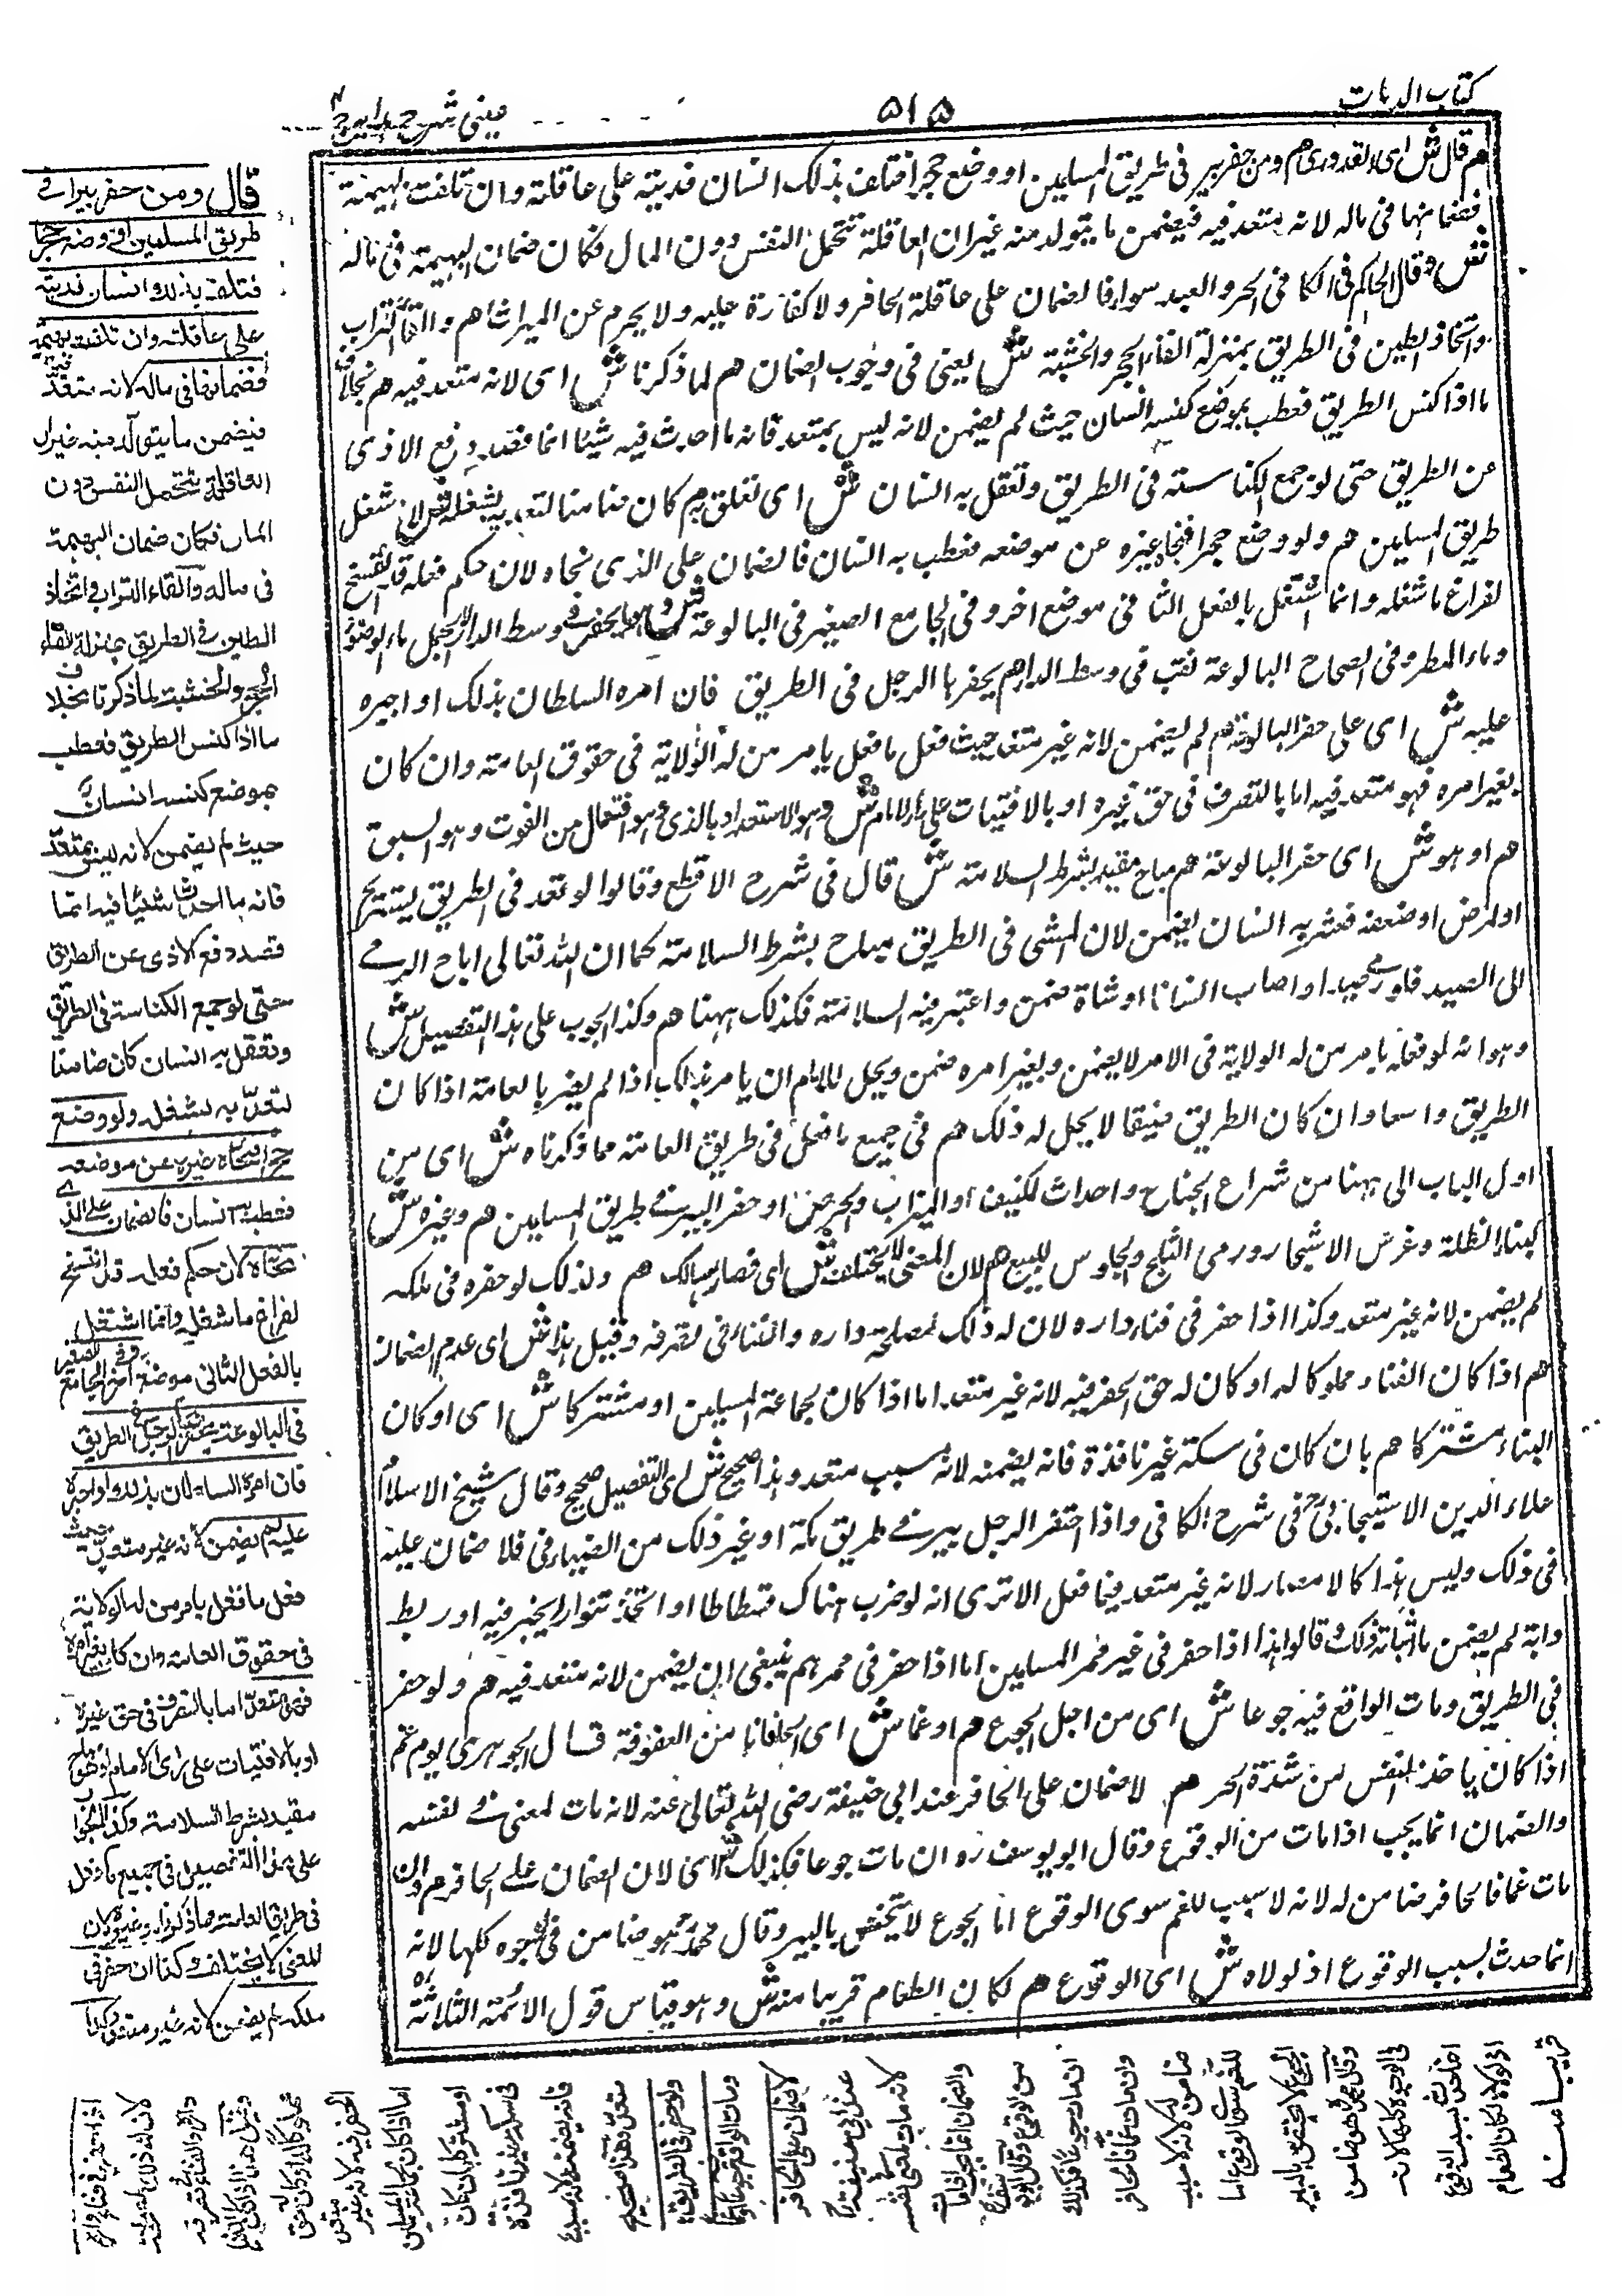 كتاب الديات
۵۱۵
عيني شرح هدايه ج ٤
هم قال ش اى القدورى هم ومن حفر بير فى طريق المسلمين او وضع حجرا فتلف بذلك انسان فديته على عاقلته وان تلفت بهيمة
فضمانها فى ماله لانه متعد فيه فيضمن ما يتولد منه غير ان العاقلة تتحمل النفس دون المال فكان ضمان البهيمة فى ماله
ش وقال الحاكم فى الكافى الحر والعبد سواء فالضمان على عاقلة الحافر ولا كفارة عليه ولا يحرم عن الميراث هم والقاء التراب
واتخاذ الطين فى الطريق بمنزلة القاء الحجر والخشبة ش يعنى فى وجوب الضمان هم لما ذكرنا ش اى لانه متعد فيه هم بخلاف
ما اذا كنس الطريق فعطب بموضع كنسه انسان حيث لم يضمن لانه ليس بمتعد فانه ما احدث فيه شيئا انما قصد دفع الاذى
عن الطريق حتى لو جمع الكناسته فى الطريق وتعقل به انسان ش اى تعلق هم كان ضامنا لتعديه بشغله ش لانه شغل
طريق المسلمين هم ولو وضع حجرا فنحاه غيره عن موضعه فعطب به انسان فالضمان على الذى نحاه لان حكم فعله قد انتسخ
لفراغ ما شغله وانما اشتغل بالفعل الثانى موضع اخر وفى الجامع الصغير فى البالوعة ش وهو ما يحفر فى وسط الدار لاجل ماء الوضوء
وماء المطر وفى الصحاح البالوعة ثقب فى وسط الدار هم يحفرها الرجل فى الطريق فان امره السلطان بذلك او اجبره
عليه ش اى على حفر البالوعة هم لم يضمن لانه غير متعد حيث فعل ما فعل بامر من له الولاية فى حقوق العامة وان كان
بغير امره فهو متعد فيه اما بالتصرف فى حق غيره او بالافتيات على راى الامام ش وهو الاستعداد بالذى هو افتعال من الفوت وهو السبق
هم او هو ش اى حفر البالوعة هم مباح مقيد بشرط السلامة ش قال فى شرح الاقطع وقالوا لو قعد فى الطريق يستريح
او لمرض او ضعفه فعثر به انسان يضمن لان المشى فى الطريق مباح بشرط السلامة كما ان الله تعالى اباح الرمى
الى الصيد فلو رمى صيدا او اصاب انسانا او شاة ضمن واعتبر فيه السلامة فكذلك ههنا هم وكذا الجوب على هذا التفصيل ش
وهو انه لو فعله بامر من له الولاية فى الامر لا يضمن وبغير امره ضمن ويحل للامام ان يامر بذلك اذا لم يضر بالعامة اذا كان
الطريق واسعا وان كان الطريق ضيقا لا يحل له ذلك هم فى جميع ما فعل فى طريق العامة مما ذكرناه ش اى من
اول الباب الى ههنا من شراع الجناح واحداث الكنيف او الميزاب والجرصن او حفر البير فى طريق المسلمين هم وغيره ش
كبناء الظلة وغرس الاشجار ورمى الثلج والجلوس للبيع هم لان المعنى لا يختلف ش اى فصار هنالك هم وكذلك لو حفره فى ملكه
لم يضمن لانه غير متعد وكذا اذا حفر فى فناء داره لان له ذلك لمصلحة داره والفناء فى تصرفه وقيل هذا ش اى عدم الضمان
هم اذا كان الفناء مملوكا له او كان له حق الحفر فيه لانه غير متعد اما اذا كان لجماعة المسلمين او مشتركا ش اى او كان
البناء مشتركا هم بان كان فى سكة غير نافذة فانه يضمنه لانه مسبب متعد وهذا صحيح ش اى التفصيل صحيح وقال شيخ الاسلام
علاء الدين الاسبيجابى رح فى شرح الكافى واذا احتفر الرجل بير فى طريق مكة او غير ذلك من الفيافى فلا ضمان عليه
فى ذلك وليس هذا كالامصار لانه غير متعد فيما فعل الا ترى انه لو ضرب هناك فسطاطا او اتخذ تنورا يخبز فيه او ربط
دابة لم يضمن ما اثباته ذلك وقالوا هذا اذا حفر فى غير ممر المسلمين اما اذا حفر فى ممرهم ينبغى ان يضمن لانه متعد فيه هم ولو حفر
فى الطريق ومات الواقع فيه جوعا ش اى من اجل الجوع هم او غما ش اى انخناقا من العفونة قال الجوهرى يوم غم
اذا كان ياخذ بالنفس من شدة الحر هم لا ضمان على الحافر عند ابى حنيفة رضى الله تعالى عنه لانه مات لمعنى فى نفسه
والضمان انما يجب اذا مات من الوقوع وقال ابو يوسف ره ان مات جوعا فكذلك ش اى لان الضمان على الحافر هم وان
مات غما فالحافر ضامن له لانه لا سبب للغم سوى الوقوع اما الجوع لا يختص بالبير وقال محمد هو ضامن فى الوجوه كلها لانه
انما حدث بسبب الوقوع اذ لولاه ش اى الوقوع هم لكان الطعام قريبا منه ش وهو قياس قول الائمة الثلاثة
قال ومن حفر بيرا فى
طريق المسلمين او وضع حجرا
فتلف بذلك انسان فديته
على عاقلته وان تلفت بهيمة
فضمانها فى ماله لانه متعد
فيضمن ما يتولد منه غير ان
العاقلة تتحمل النفس دون
المال فكان ضمان البهيمة
فى ماله والقاء التراب واتخاذ
الطين فى الطريق بمنزلة القاء
الحجر والخشبة لما ذكرنا بخلاف
ما اذا كنس الطريق فعطب
بموضع كنسه انسان
حيث لم يضمن لانه ليس بمتعد
فانه ما احدث شيئا فيه انما
قصد دفع الاذى عن الطريق
حتى لو جمع الكناسة فى الطريق
وتعقل به انسان كان ضامنا
لتعديه بشغله ولو وضع
حجرا فنحاه غيره عن موضعه
فعطب به انسان فالضمان على الذى
نحاه لان حكم فعله قد انتسخ
لفراغ ما شغله وانما اشتغل
بالفعل الثانى موضع اخر وفى الجامع الصغير
فى البالوعة يحفرها الرجل فى الطريق
فان امره السلطان بذلك او اجبره
عليه لم يضمن لانه غير متعد حيث
فعل ما فعل بامر من له الولاية
فى حقوق العامة وان كان بغير امره
فهو متعد اما بالتصرف فى حق غيره
او بالافتيات على راى الامام او هو مباح
مقيد بشرط السلامة وكذا الجواب
على هذا التفصيل فى جميع ما فعل
فى طريق العامة مما ذكرناه وغيره لان
المعنى لا يختلف وكذا ان حفر فى
ملكه لم يضمن لانه غير متعد وكذا
اذا حفر فى فناء داره
لان له ذلك لمصلحة
داره والفناء فى تصرفه
وقيل هذا اذا كان الفناء
مملوكا له او كان له حق
الحفر فيه لانه غير متعد
اما اذا كان لجماعة المسلمين
او مشتركا بان كان
فى سكة غير نافذة
فانه يضمنه لانه مسبب
متعد وهذا صحيح
ولو حفر فى الطريق
ومات الواقع فيه جوعا او غما
لا ضمان على الحافر
عند ابى حنيفة رح
لانه مات لمعنى فى نفسه
والضمان انما يجب اذا مات
من الوقوع وقال ابو يوسف رح
ان مات جوعا فكذلك
وان مات غما فالحافر
ضامن له لانه لا سبب
للغم سوى الوقوع اما
الجوع لا يختص بالبير
وقال محمد هو ضامن
فى الوجوه كلها لانه
انما حدث بسبب الوقوع
اذ لولاه لكان الطعام
قريبا منه